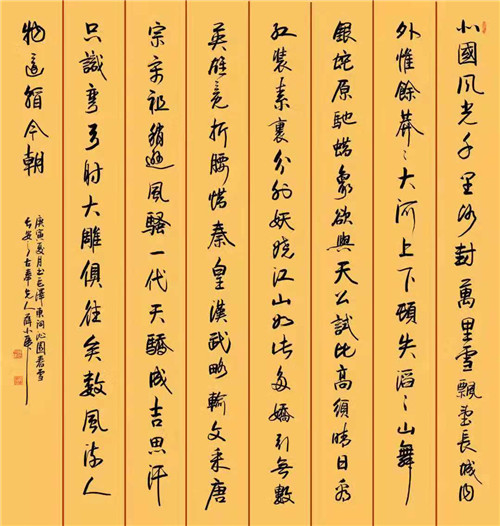 北國风光千里冰封萬里雪飄望長城内
外惟餘莽〻大河上下頓失滔〻山舞
銀蛇原馳蜡象欲與天公試比高須晴日看
红装素裹分外妖娆江山如此多嬌引無數
英雄竞折腰惜秦皇漢武略輸文采唐
宗宋祖稍遜風騷一代天驕成吉思汗
只識彎弓射大雕俱往矣數風流人
物還看今朝
庚寅夏月书毛澤東词沁園春雪
古奉先人薛小